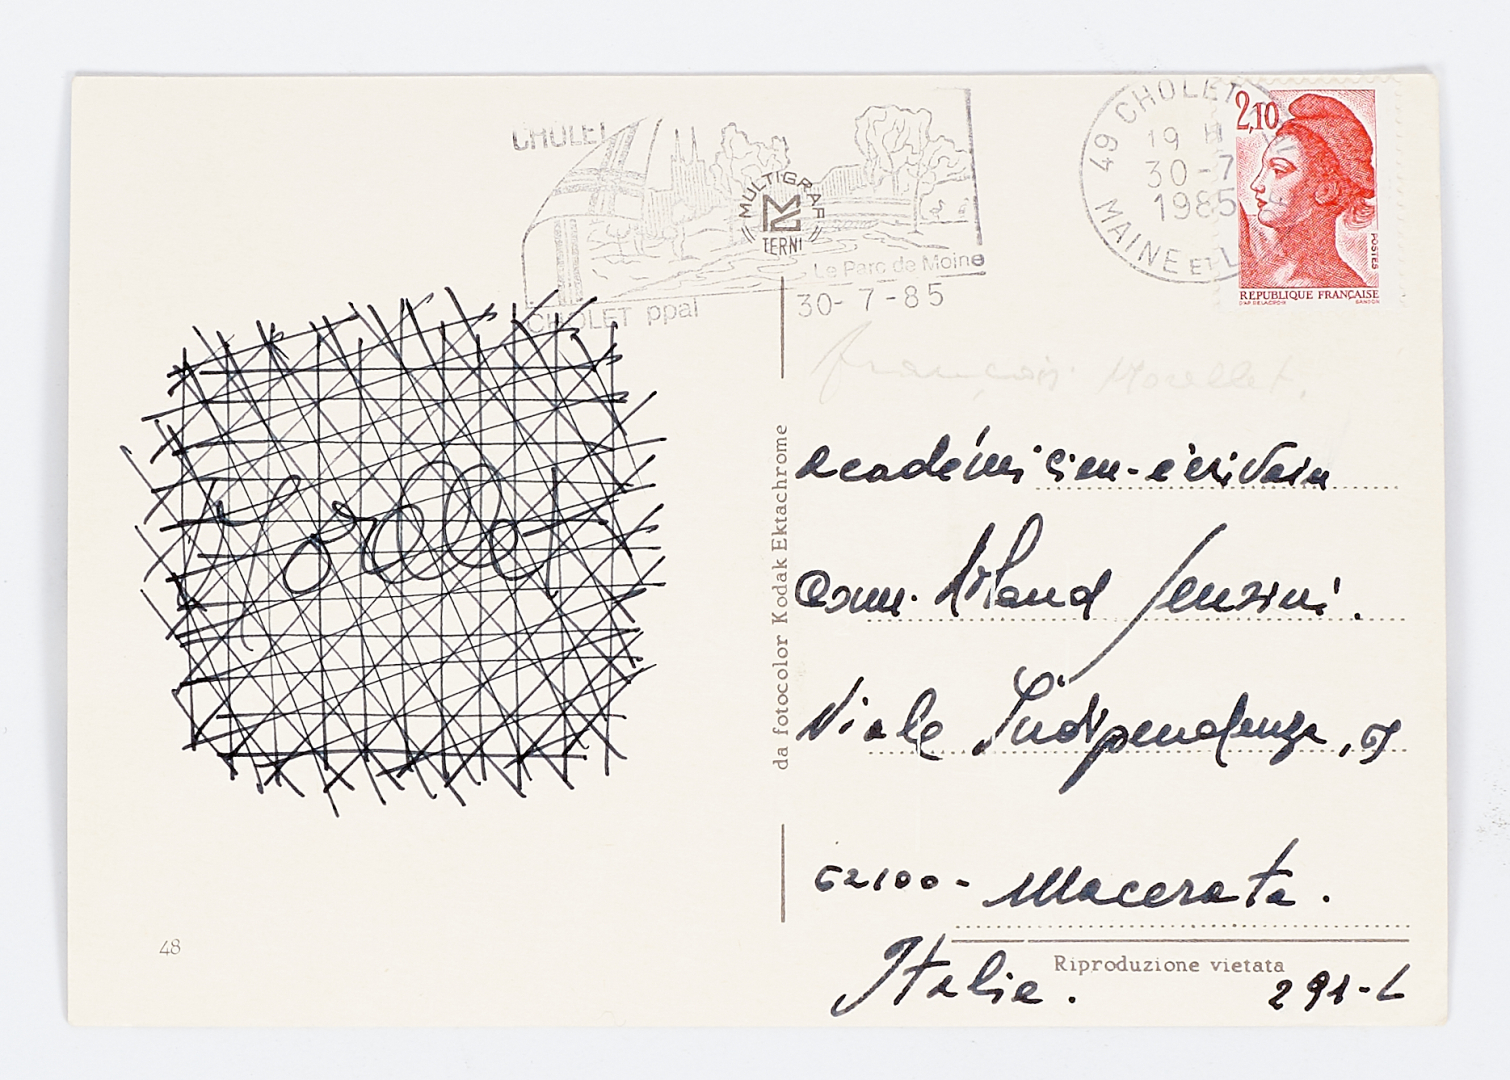 CHOLET
MULTIGRAF
TERNI
Le Parc de Moine
CHOLET ppal
30-7-85
49 CHOLET
19 H
30-7
1985
MAINE ET L
2,10
POSTES
REPUBLIQUE FRANÇAISE
françois Morellet.
Morellet
da fotocolor Kodak Ektachrome
académicien-écrivain
Viale Indipendenza,
62100- Macerata.
Italie.
48
Riproduzione vietata
291-L